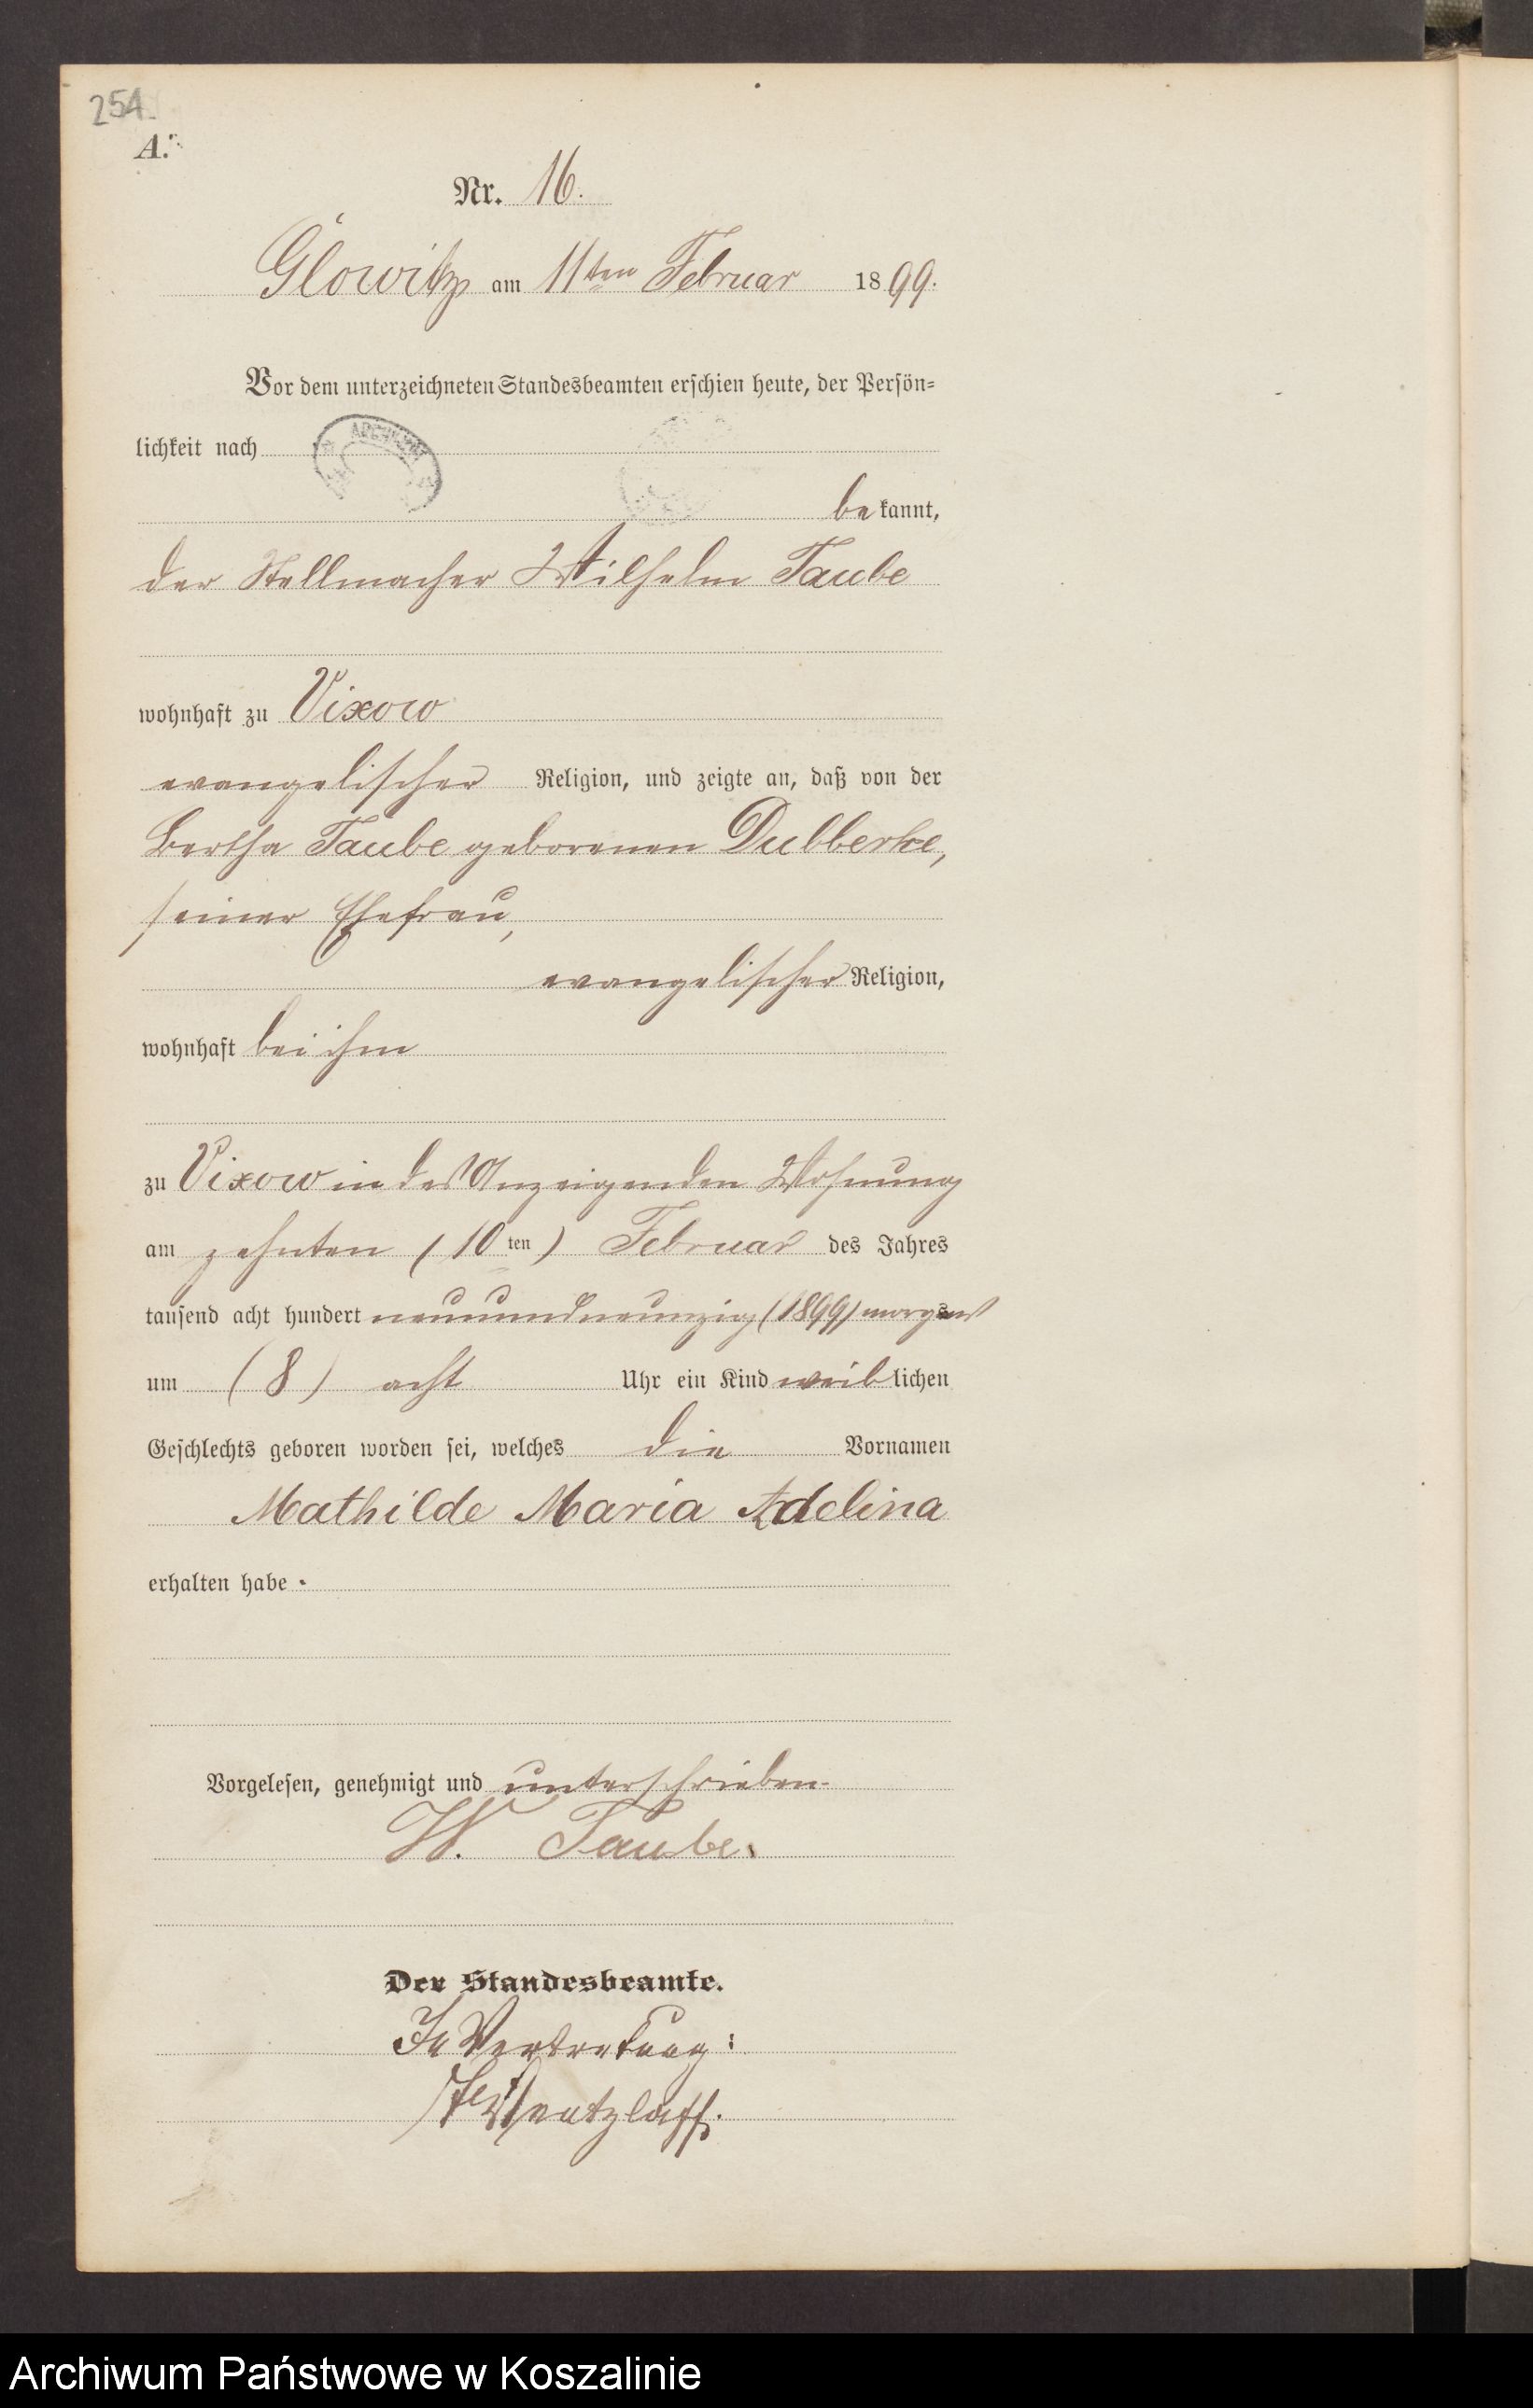 254.
A.
Nr. 16.
Glowitz am 11ten Februar 1899.
Vor dem unterzeichneten Standesbeamten erschien heute, der Persön-
lichkeit nach
bekannt,
der Stellmacher Wilhelm Taube
wohnhaft zu Vixow
evangelischer Religion, und zeigte an, daß von der
Bertha Taube geborenen Dubberke,
seiner Ehefrau,
evangelischer Religion,
wohnhaft bei ihm
zu Vixow in des Anzeigenden Wohnung
am zehnten (10ten) Februar des Jahres
tausend acht hundert neunundneunzig (1899) morgens
um (8) acht Uhr ein Kind weiblichen
Geschlechts geboren worden sei, welches die Vornamen
Mathilde Maria Adelina
erhalten habe.
Vorgelesen, genehmigt und unterschrieben.
W. Taube.
Der Standesbeamte.
In Vertretung:
Wentzlaff.
Archiwum Państwowe w Koszalinie